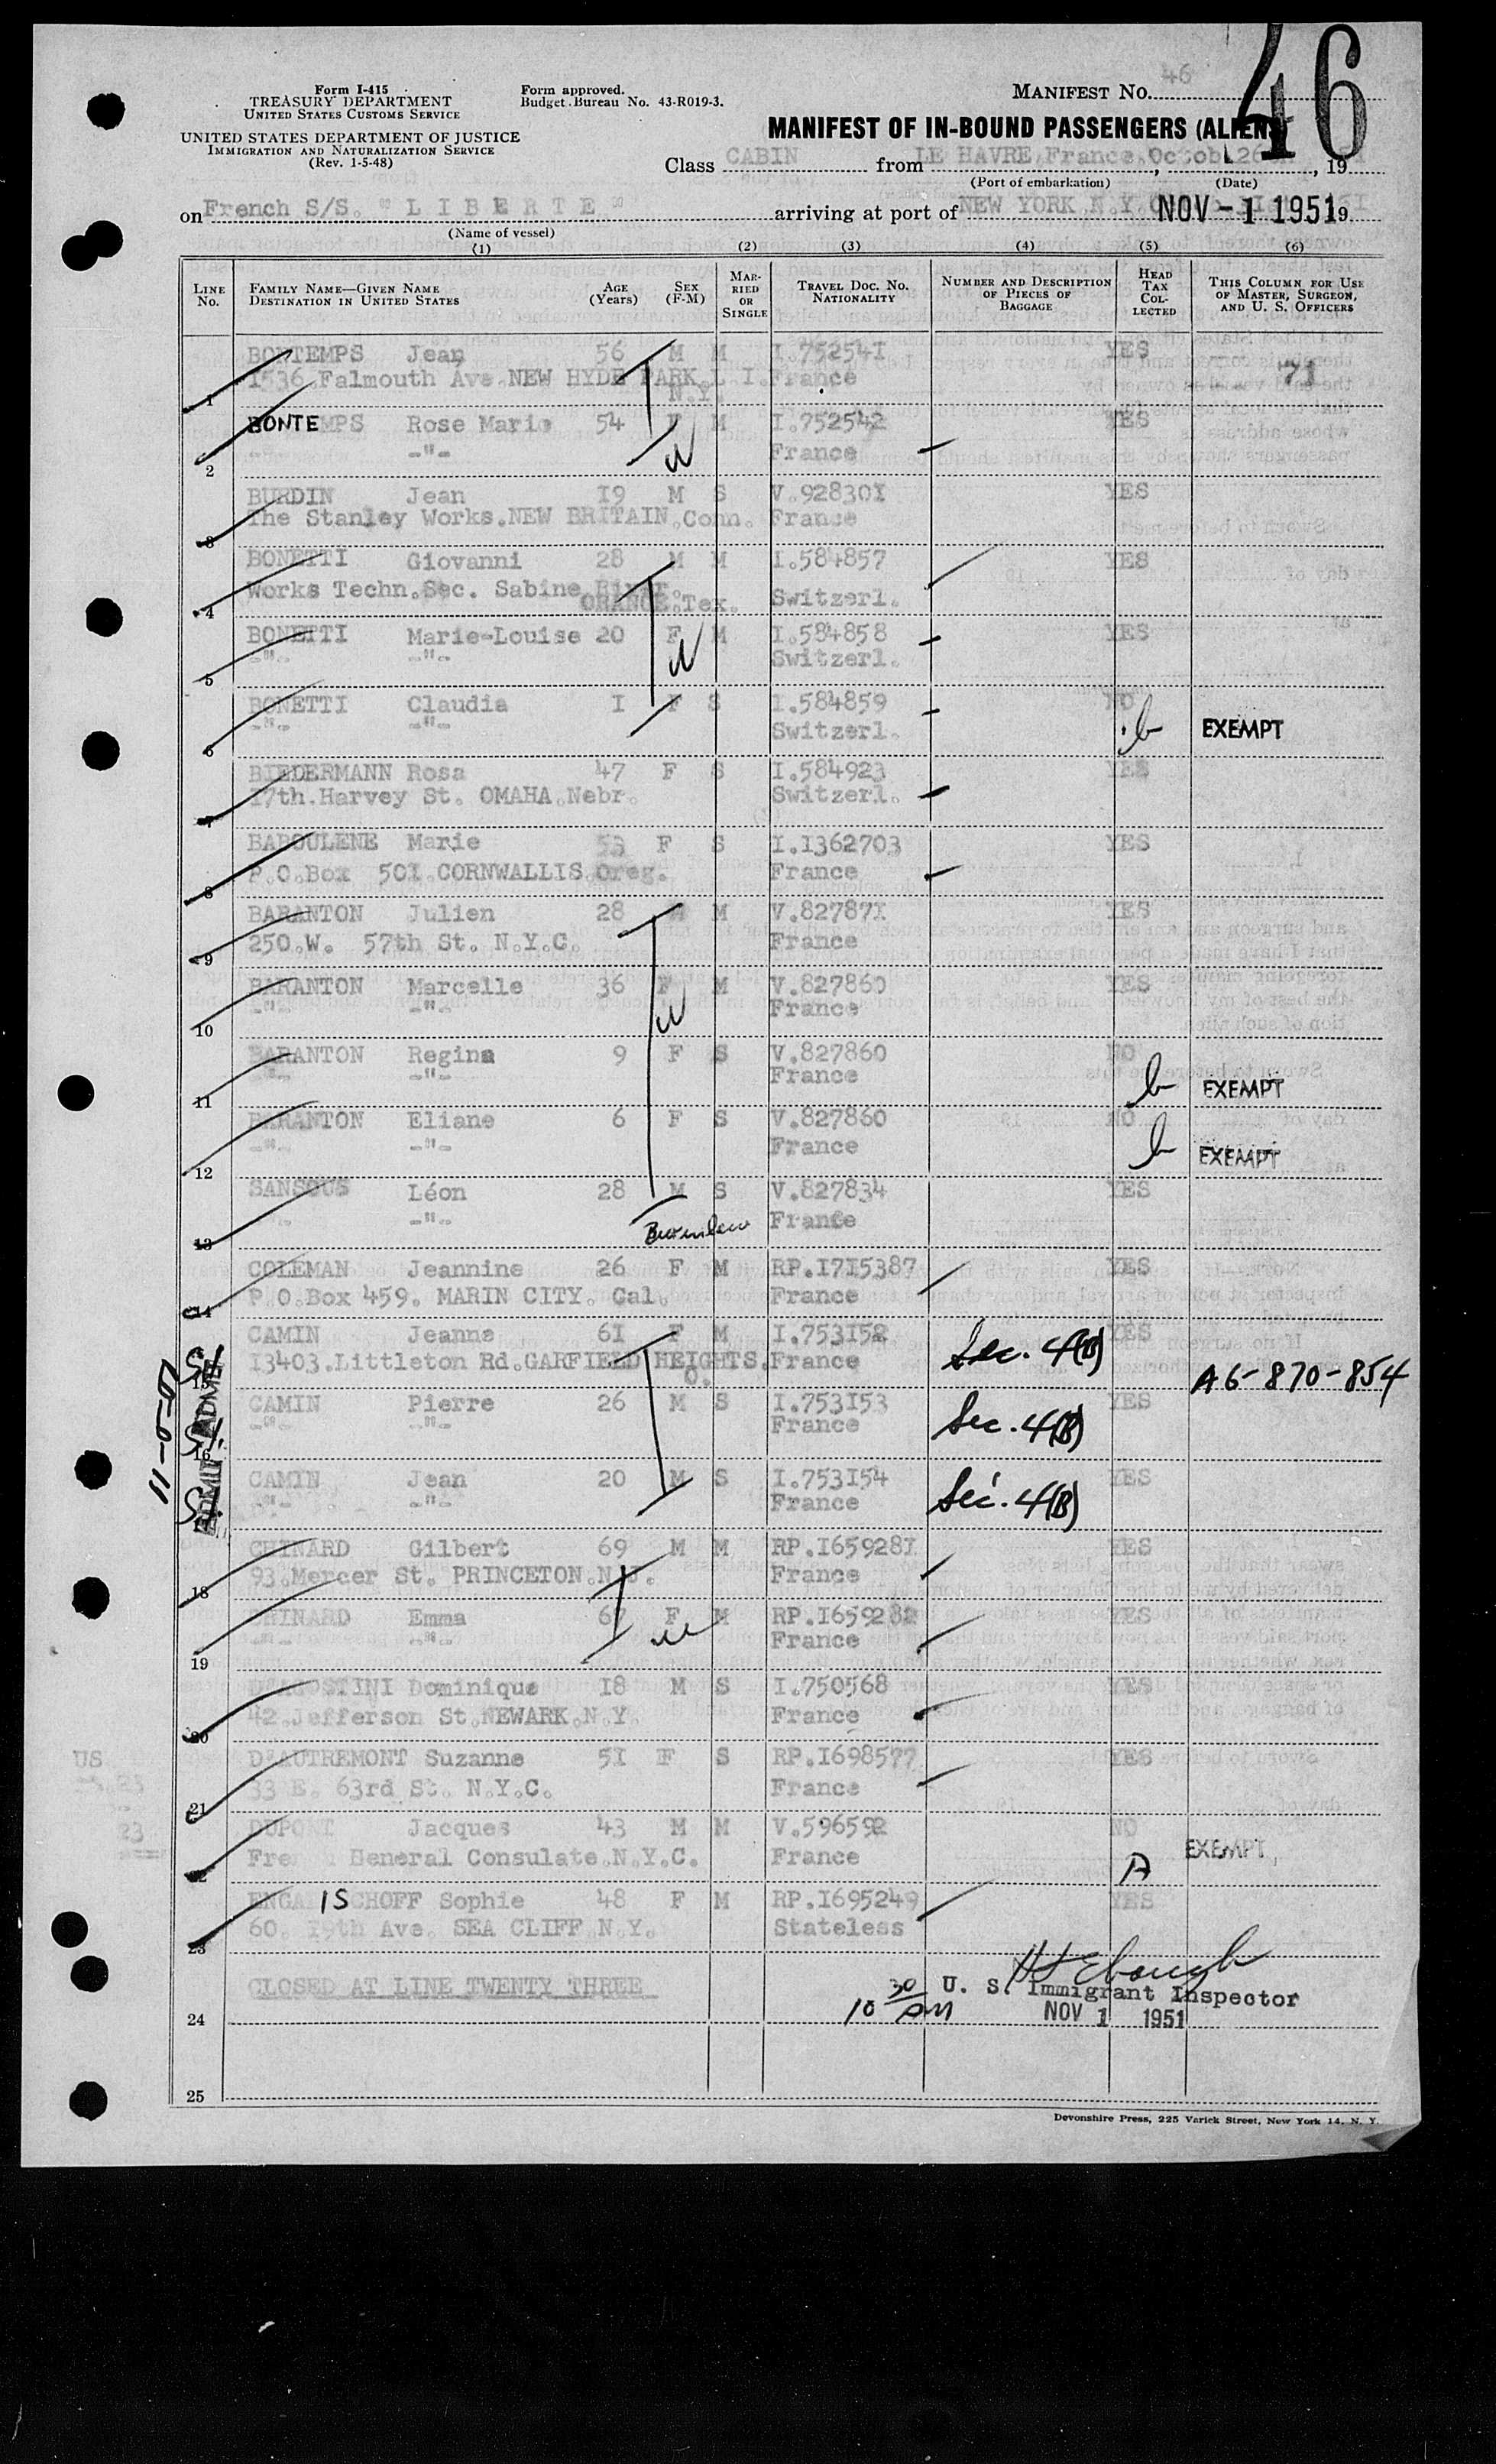 46
Form I-415
TREASURY DEPARTMENT
UNITED STATES CUSTOMS SERVICE
UNITED STATES DEPARTMENT OF JUSTICE
IMMIGRATION AND NATURALIZATION SERVICE
(Rev. 1-5-48)
Form approved.
Budget Bureau No. 43-R019-3.
MANIFEST NO. 46
MANIFEST OF IN-BOUND PASSENGERS (ALIENS)
Class CABIN from LE HAVRE, France, 19
(Port of embarkation) (Date)
on French S/S. "LIBERTE" arriving at port of NEW YORK N.Y. NOV-1 1951 19
(Name of vessel)
(1) (2) (3) (4) (5) (6)
LINE NO. FAMILY NAME—GIVEN NAME DESTINATION IN UNITED STATES AGE (Years) SEX (F-M) MARRIED OR SINGLE TRAVEL DOC. NO. NATIONALITY NUMBER AND DESCRIPTION OF PIECES OF BAGGAGE HEAD TAX COLLECTED THIS COLUMN FOR USE OF MASTER, SURGEON, AND U. S. OFFICERS
BONTEMPS Jean 56 M M I.752541 YES
1 1536 Falmouth Ave NEW HYDE PARK L I. N.Y. France 71
BONTEMPS Rose Marie 54 F M I.752542 YES
2 -"- -"- France
BURDIN Jean 19 M S V.928301 YES
3 The Stanley Works. NEW BRITAIN. Conn. France
BONETTI Giovanni 28 M M I.584857 YES
4 Works Techn. Sec. Sabine River. ORANGE. Tex. Switzerl.
BONETTI Marie-Louise 20 F M I.584858 YES
5 -"- -"- Switzerl.
BONETTI Claudia I F S I.584859 NO
6 -"- -"- Switzerl. b EXEMPT
BIEDERMANN Rosa 47 F S I.584923 YES
7 17th. Harvey St. OMAHA. Nebr. Switzerl.
BABOULENE Marie 53 F S I.1362703 YES
8 P.O. Box 501 CORNWALLIS Oreg. France
BARANTON Julien 28 M M V.827871 YES
9 250. W. 57th St. N.Y.C. France
BARANTON Marcelle 36 F M V.827860 YES
10 -"- -"- France
BARANTON Regina 9 F S V.827860 NO
11 -"- -"- France b EXEMPT
BARANTON Eliane 6 F S V.827860 NO
12 -"- -"- France b EXEMPT
SANSOUS Léon 28 M S V.827834 YES
13 -"- -"- France
COLEMAN Jeannine 26 F M RP.1715387 YES
14 P.O. Box 459. MARIN CITY. Cal. France
CAMIN Jeanne 61 F M I.753152 Sec. 4(B) YES
15 13403. Littleton Rd. GARFIELD HEIGHTS. O. France A6-870-854
CAMIN Pierre 26 M S I.753153 Sec. 4(B) YES
16 -"- -"- France
CAMIN Jean 20 M S I.753154 Sec. 4(B) YES
-"- -"- France
CHINARD Gilbert 69 M M RP.1659281 YES
18 93. Mercer St. PRINCETON. N.J. France
CHINARD Emma 67 F M RP.1659282 YES
19 -"- -"- France
D'AGOSTINI Dominique 18 M S I.750568 YES
20 42. Jefferson St. NEWARK. N.Y. France
D'AUTREMONT Suzanne 51 F S RP.1698577 YES
21 33 E. 63rd St. N.Y.C. France
DUPONT Jacques 43 M M V.596592 NO
22 General Consulate. N.Y.C. France A EXEMPT
ENGALISCHOFF Sophie 48 F M RP.1695249 YES
23 60. 19th Ave. SEA CLIFF N.Y. Stateless
CLOSED AT LINE TWENTY THREE
U. S. Immigrant Inspector
24 10 30 AM NOV 1 1951
25
US
23
23
Devonshire Press, 225 Varick Street, New York 14, N. Y.